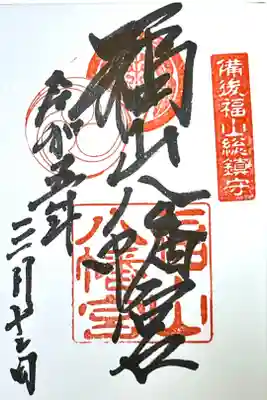 備後福山総鎮守
福山八幡宮
令和五年
三月十三日
福山
八幡宮